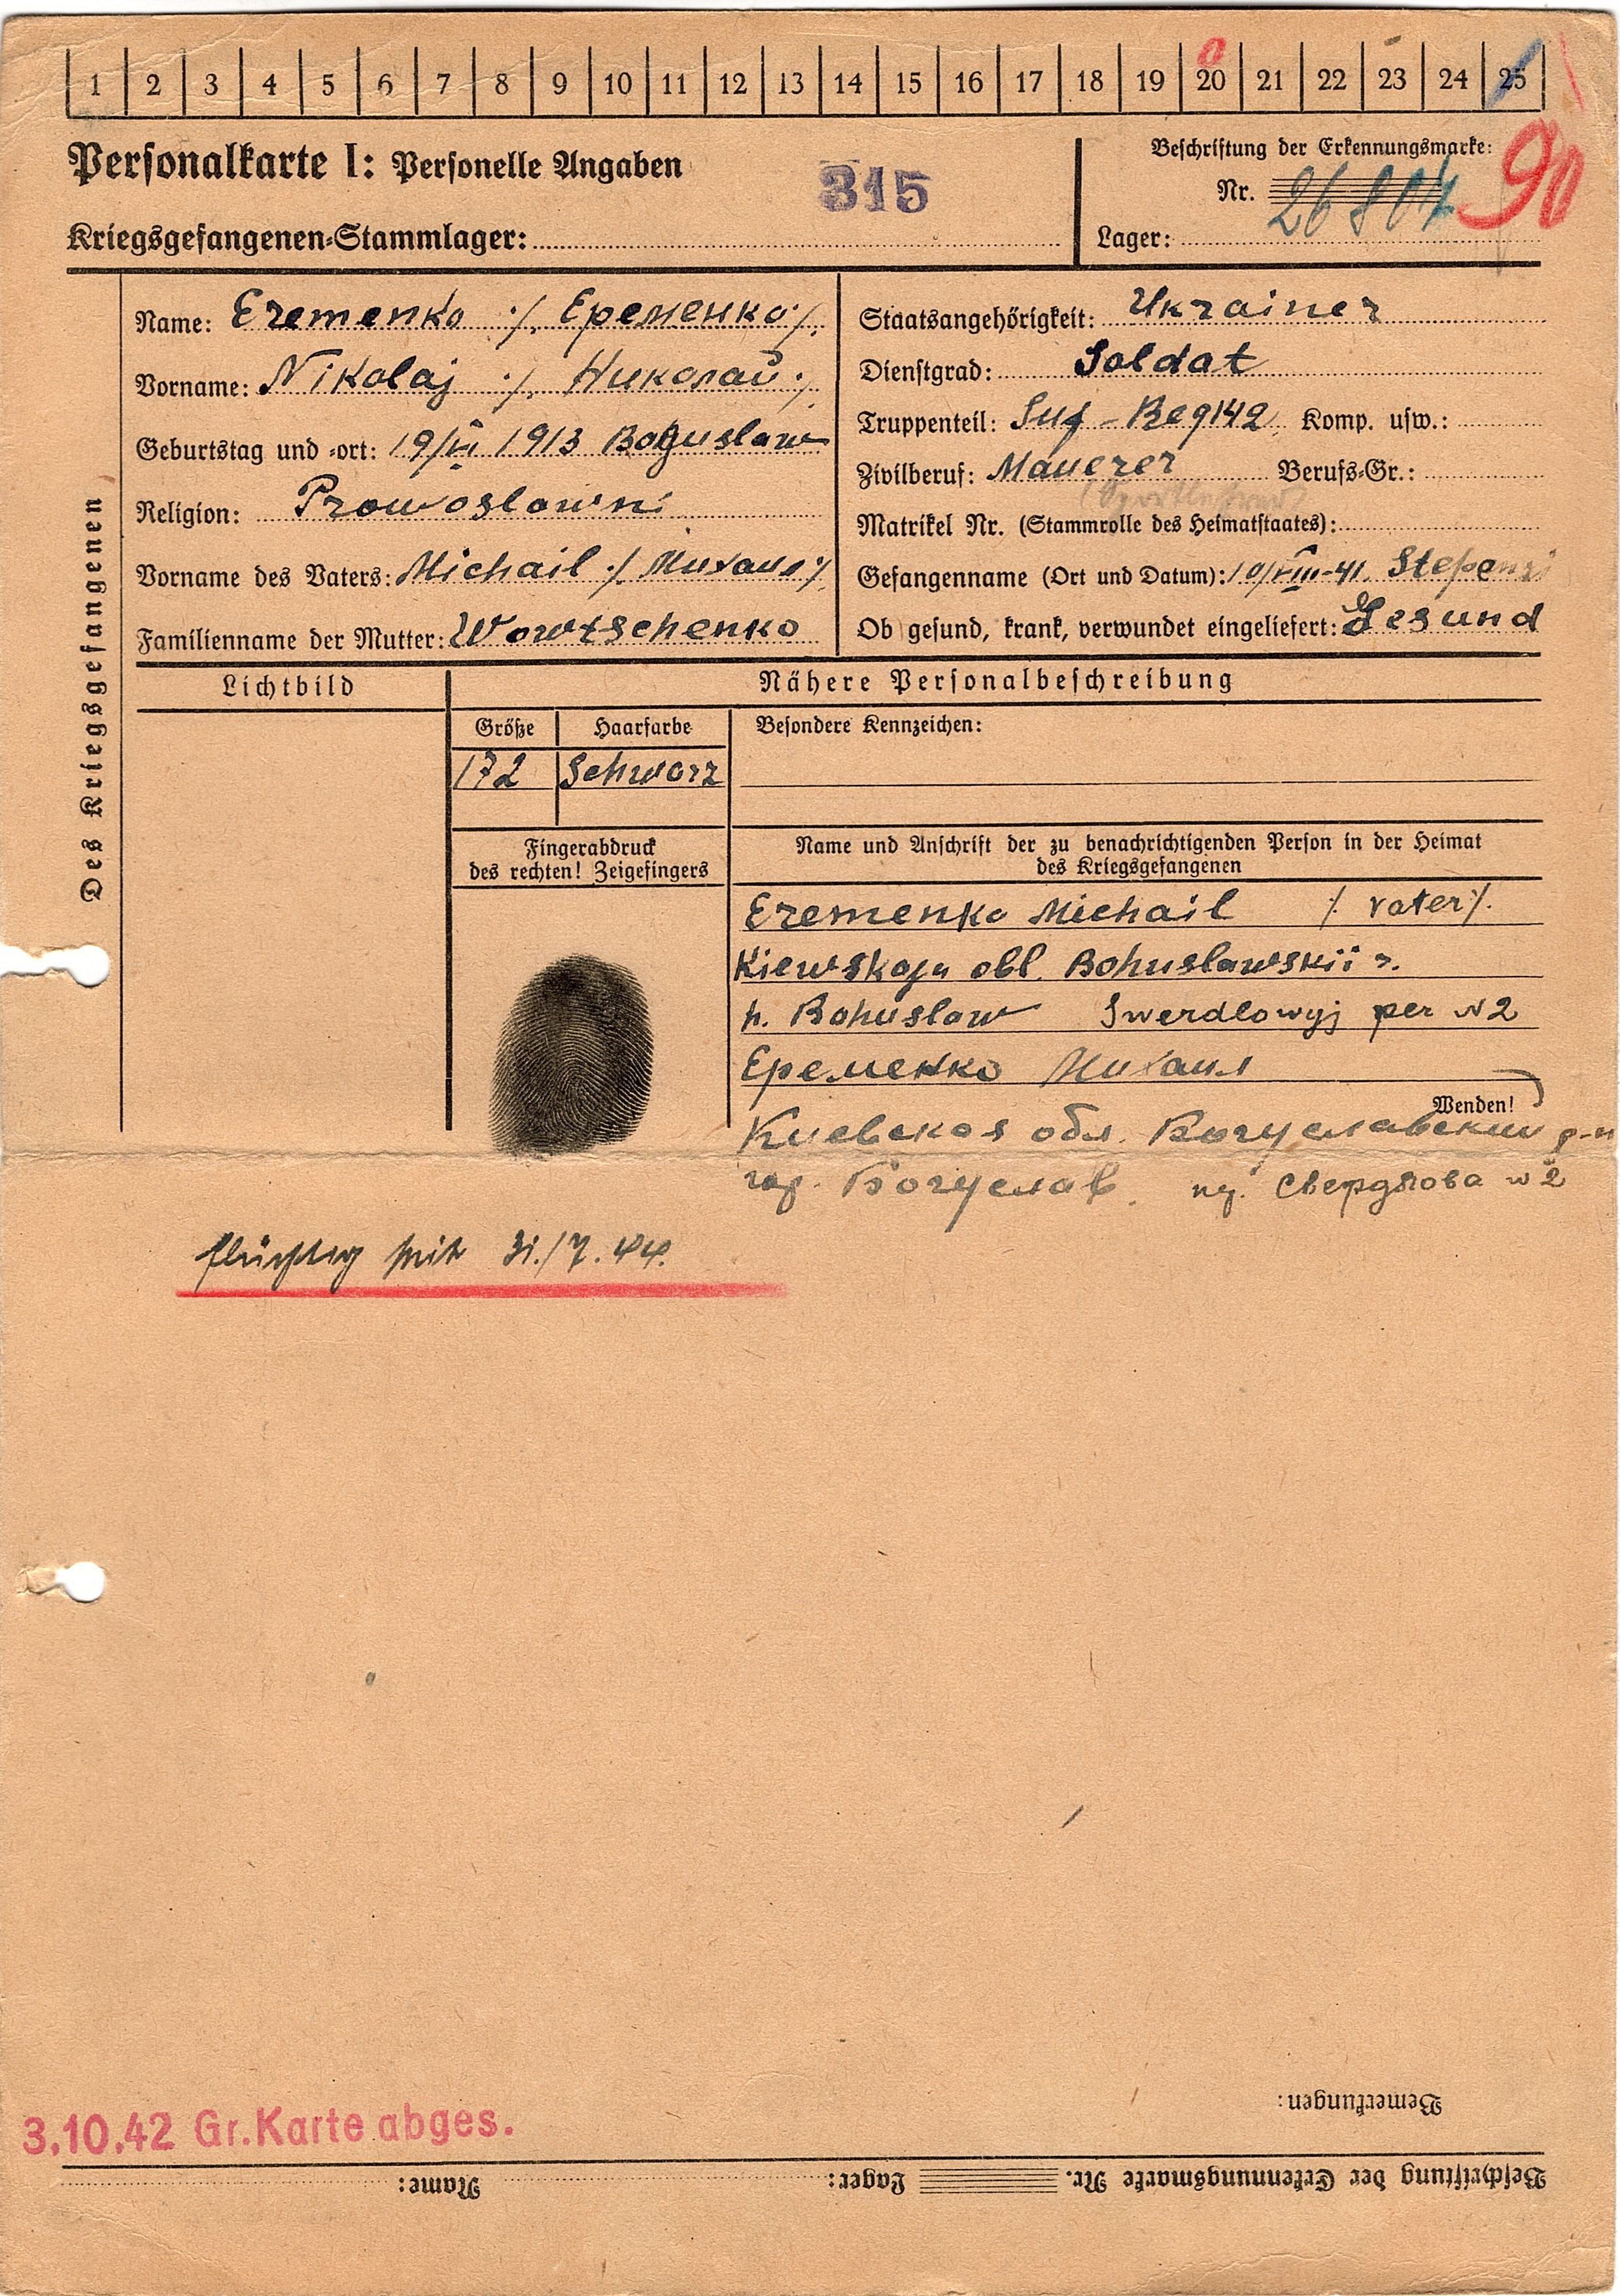 1 2 3 4 5 6 7 8 9 10 11 12 13 14 15 16 17 18 19 20 21 22 23 24 25
Personalkarte I: Personelle Angaben
315
Kriegsgefangenen-Stammlager:
Beschriftung der Erkennungsmarke:
Nr. 26804
90
Lager:
Des Kriegsgefangenen
Name: Eremenko ./. Еременко ./.
Vorname: Nikolaj ./. Николай ./.
Geburtstag und -ort: 19/VI 1913 Boguslaw
Religion: Prawoslawni
Vorname des Vaters: Michail ./. Михаил ./.
Familienname der Mutter: Wowtschenko
Staatsangehörigkeit: Ukrainer
Dienstgrad: Soldat
Truppenteil: Reg 142 Komp. usw.:
Zivilberuf: Mauerer Berufs-Gr.:
Matrikel Nr. (Stammrolle des Heimatstaates):
Gefangenname (Ort und Datum): 10/VIII-41.
Ob gesund, krank, verwundet eingeliefert: Gesund
Lichtbild
Nähere Personalbeschreibung
Größe
Haarfarbe
Besondere Kennzeichen:
172
Schwarz
Fingerabdruck
des rechten! Zeigefingers
Name und Anschrift der zu benachrichtigenden Person in der Heimat
des Kriegsgefangenen
Eremenko Michail ./. vater ./.
Kiewskaja obl. Bohuslawskii r.
h. Bohuslaw Swerdlowyj per N2
Еременко Михаил
Wenden!
Киевская обл. Богуславский р-н
гор. Богуслав. Свердлова N2
flüchtig seit 31./7.44.
Bemerkungen:
3.10.42 Gr.Karte abges.
Beschriftung der Erkennungsmarke Nr. Lager: Name: